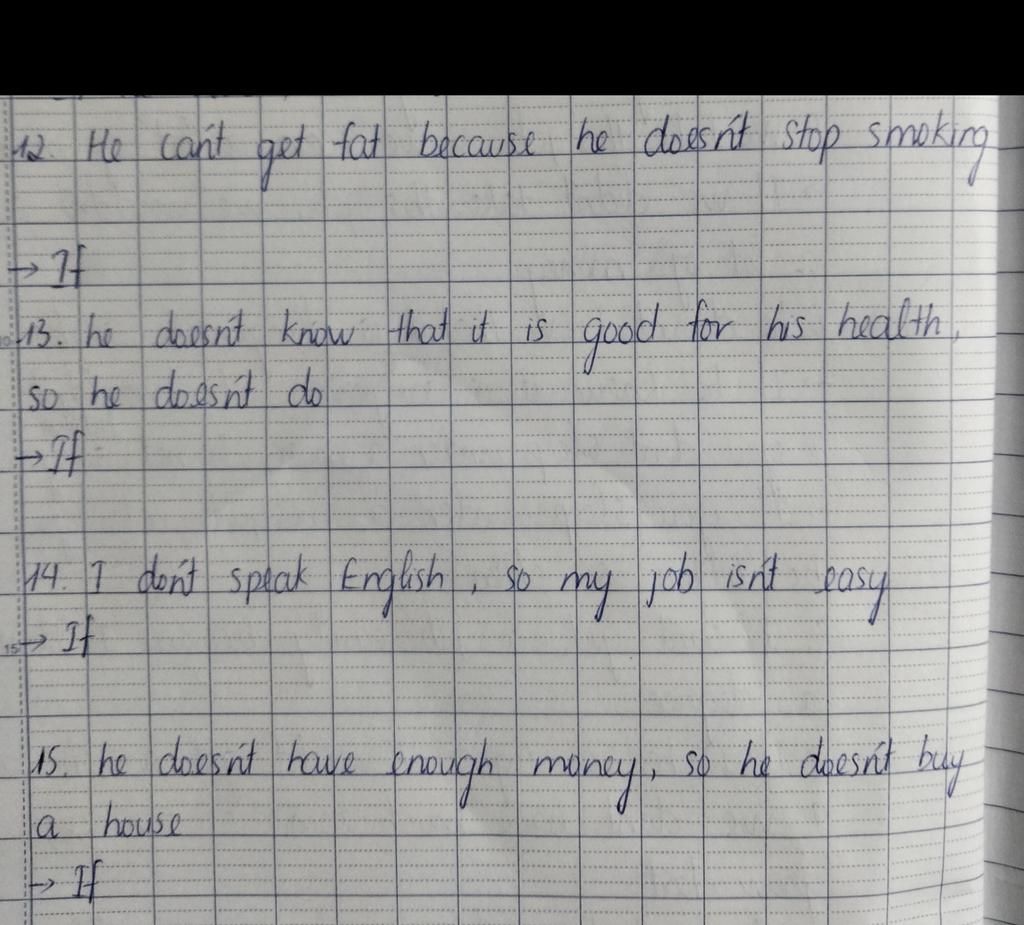 12. He can't get fat because he doesn't stop smoking
→ If
13. he doesn't know that it is good for his health,
so he doesn't do
→ If
14. I don't speak English, so my job isn't easy
15 → If
15. he doesn't have enough money, so he doesn't buy
a house
→ If